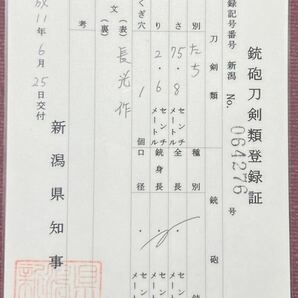 銃砲刀剣類登録証
録記号番号 新潟 No. 064276 号
刀剣類
別 たち
さ 75・8 センチメートル
り 2・6 センチメートル
くぎ穴 1個
文 (表) 長光作
(裏)
考
銃砲
種別
全長 センチメートル
銃身長 センチメートル
口径 センチメート
成11年6月25日交付
新潟県知事